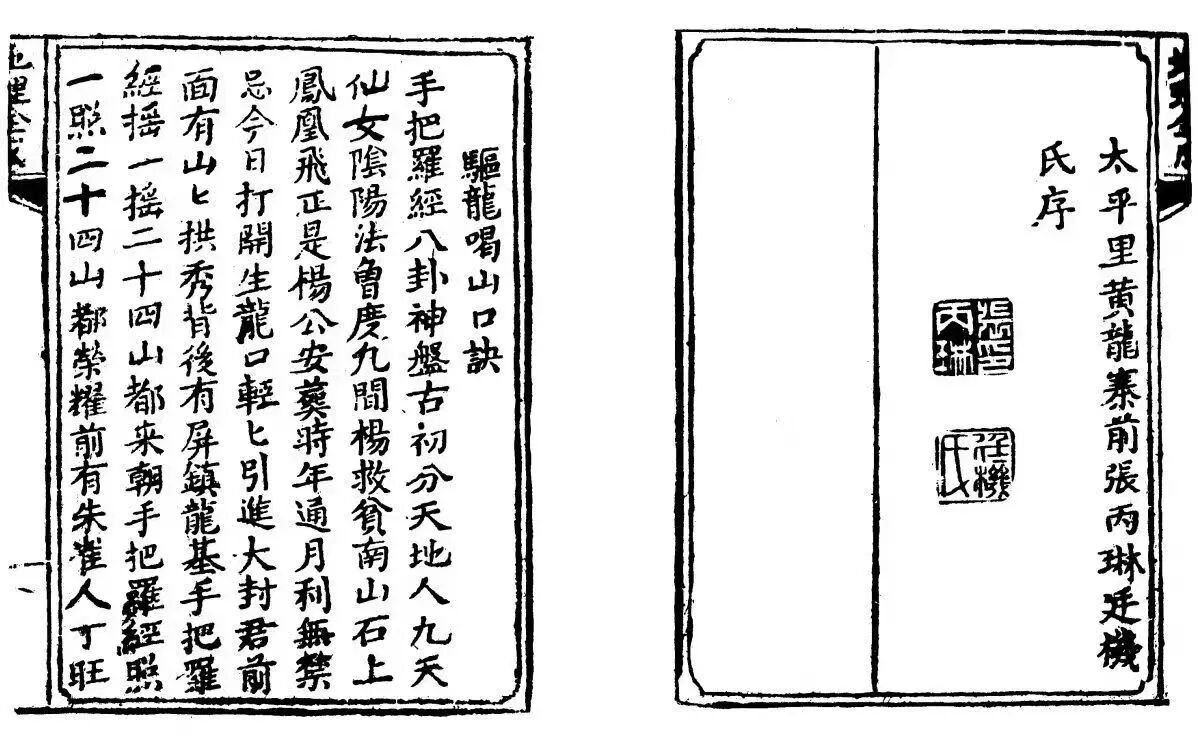 太平里黃龍寨前張丙琳廷機
氏序
張印
丙琳
廷機
氏
驅龍喝山口訣
手把羅經八卦神盤古初分天地人九天
仙女陰陽法魯度九間楊救貧南山石上
鳳凰飛正是楊公安葬時年通月利無禁
忌今日打開生龍口輕匕引進大封君前
面有山匕拱秀背後有屏鎮龍基手把羅
經摇一摇二十四山都来朝手把羅經照
一照二十四山都榮耀前有朱雀人丁旺
地理全